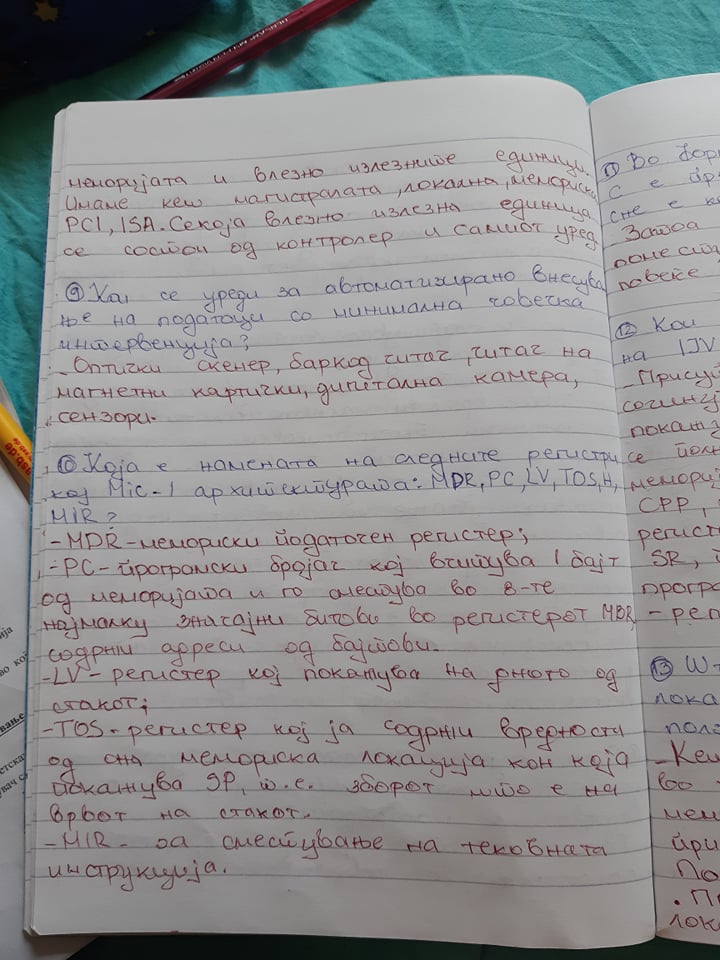 меморијата и влезно излезните единици.
Имаме кеш магистралата, локална, мемориска
PCI, ISA. Секоја влезно излезна единица
се состои од контролер и самиот уред
⑨ Кои се уреди за автоматизирано внесува
ње на податоци со минимална човечка
интервенција?
- Оптички скенер, баркод читач, читач на
магнетни картички, дигитална камера,
сензори.
⑩ Која е намената на следните регистри
кај Mic-1 архитектурата: MDR, PC, LV, TOS, H,
MIR?
- MDR - мемориски податочен регистер;
- PC - програмски бројач кој вчитува 1 бајт
од меморијата и го сместува во 8-те
најмалку значајни битови во регистерот MBR,
содржи адреси од бајтови.
- LV - регистер кој покажува на дното од
стакот;
- TOS - регистер кој ја содржи вредноста
од онаа мемориска локација кон која
покажува SP, т.е. зборот што е на
врвот на стакот.
- MIR - за сместување на тековната
инструкција.
⑪ Во
с е
сне е
Затоа
повеќе
⑫ Кои
на IJV
- Присуј
сочину
покажу
се
мемориј
CPP,
регист
SR,
програ
- рег
⑬ Шт
лока
пол
- Кеш
во
мем
при
По
лока